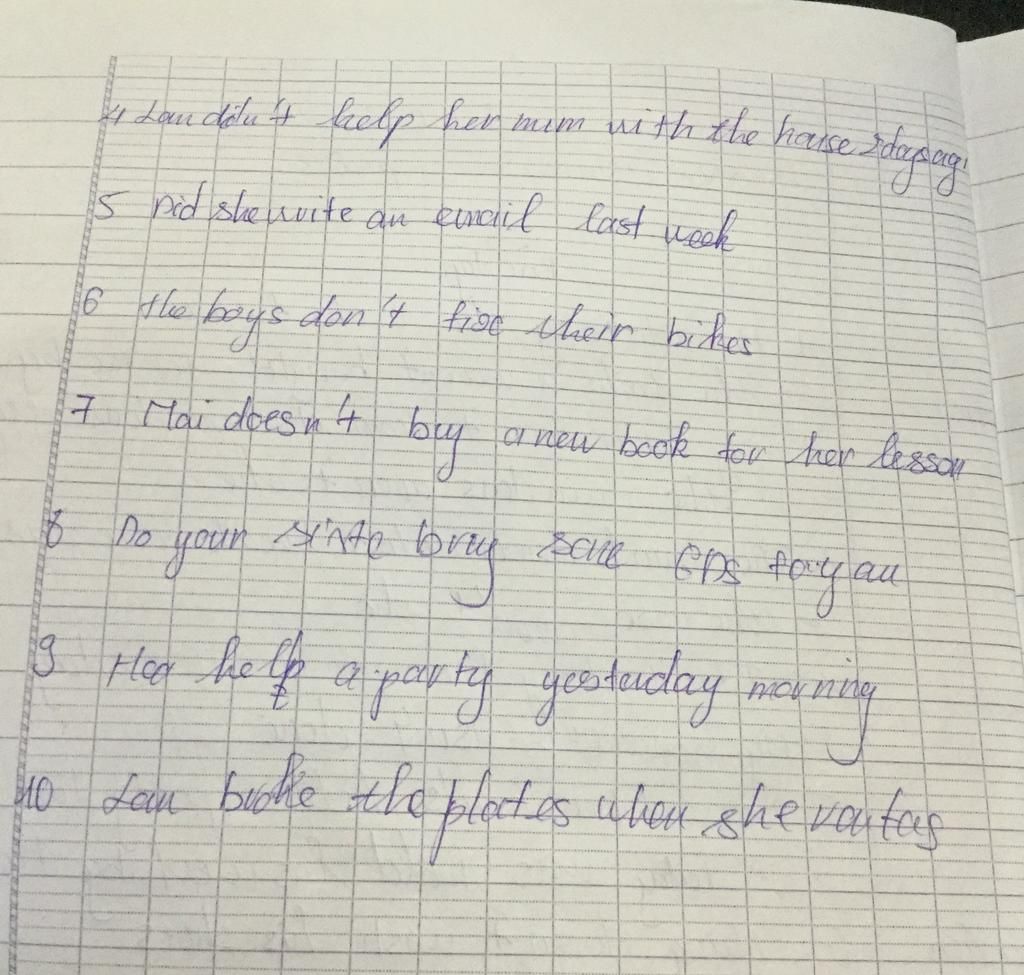 4 Lan didn't help her mum with the house 2 days ago
5 Did she write an email last week
6 the boys don't fix their bikes
7 Mai doesn't buy a new book for her lesson
8 Do your buy some CDs for you
9 Hoa help a party yesterday morning
10 Lan broke the plates when she